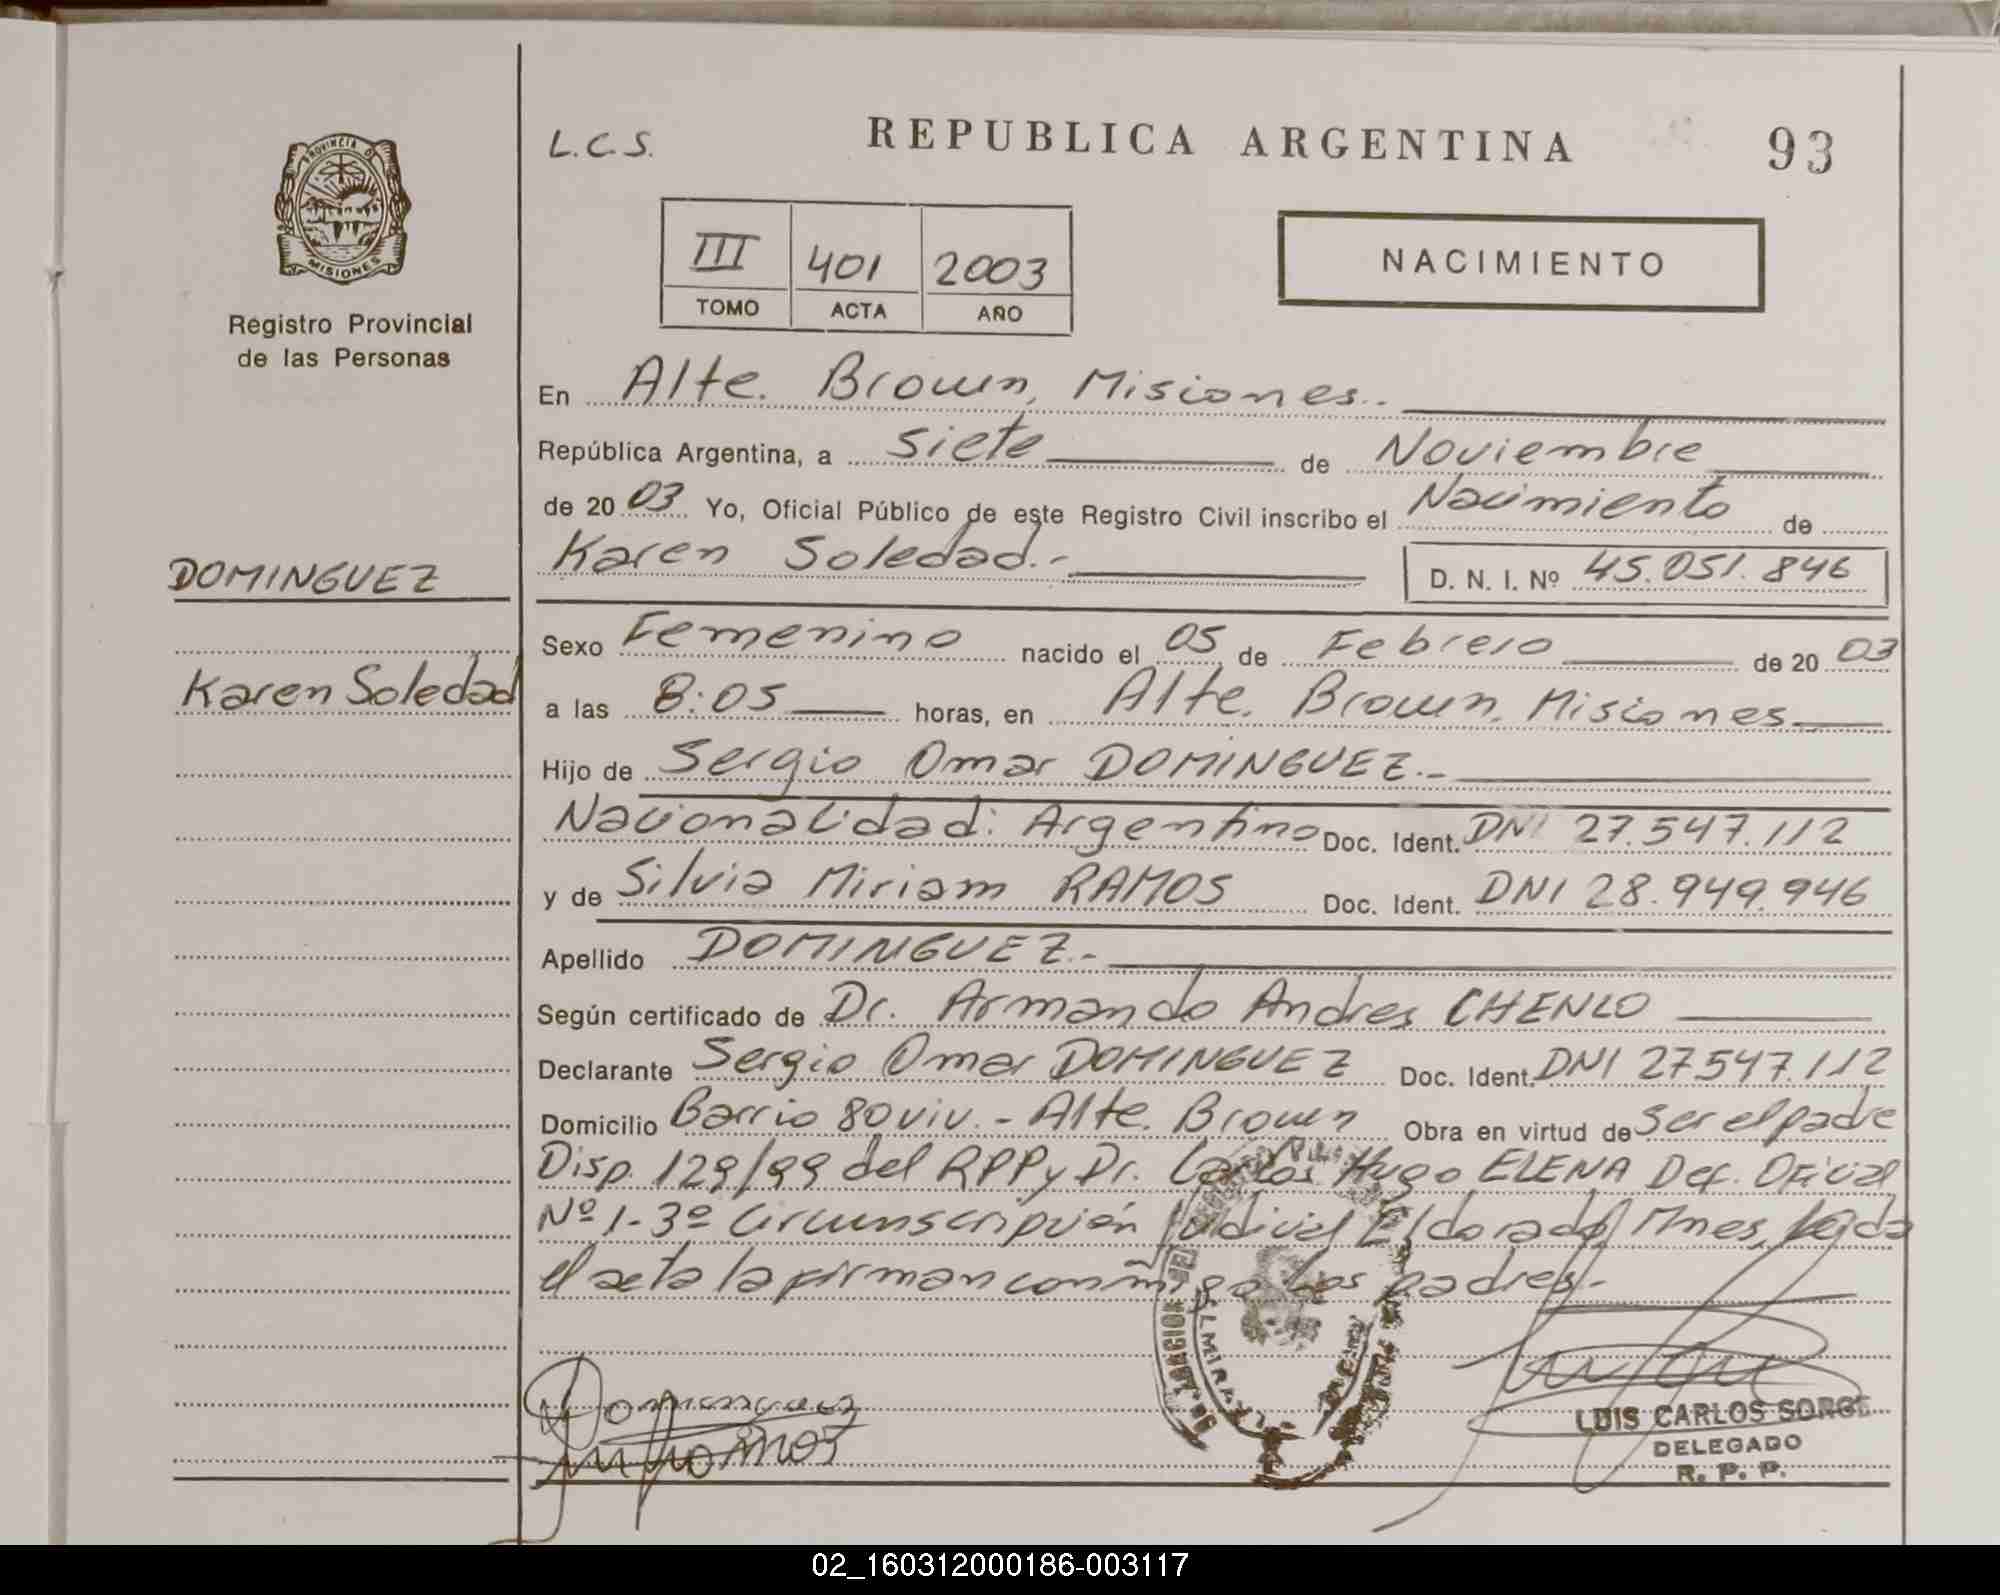 L.C.S.
REPUBLICA ARGENTINA
93
PROVINCIA D
MISIONES
Registro Provincial
de las Personas
III 401 2003
TOMO ACTA AÑO
NACIMIENTO
En Alte. Brown, Misiones.
República Argentina, a siete de Noviembre
de 20 03 Yo, Oficial Público de este Registro Civil inscribo el Nacimiento de
Karen Soledad.-
D. N. I. Nº 45.051.846
DOMINGUEZ
Karen Soledad
Sexo Femenino nacido el 05 de Febrero de 20 03
a las 8:05 horas, en Alte. Brown, Misiones
Hijo de Sergio Omar DOMINGUEZ.-
Nacionalidad: Argentino Doc. Ident. DNI 27.547.112
y de Silvia Miriam RAMOS Doc. Ident. DNI 28.949.946
Apellido DOMINGUEZ.-
Según certificado de Dr. Armando Andres CHENLO
Declarante Sergio Omar DOMINGUEZ Doc. Ident. DNI 27547.112
Domicilio Barrio 80 viv. - Alte. Brown Obra en virtud de ser el padre
Disp. 129/99 del RPPy Dr. Carlos Hugo ELENA Def. Oficial
Nº 1-3º Circunscripción Judicial Eldorado, Mnes, leída
el acta la firman conmigo los padres.-
Dominguez
LUIS CARLOS SORGE
DELEGADO
R. P. P.
02_160312000186-003117